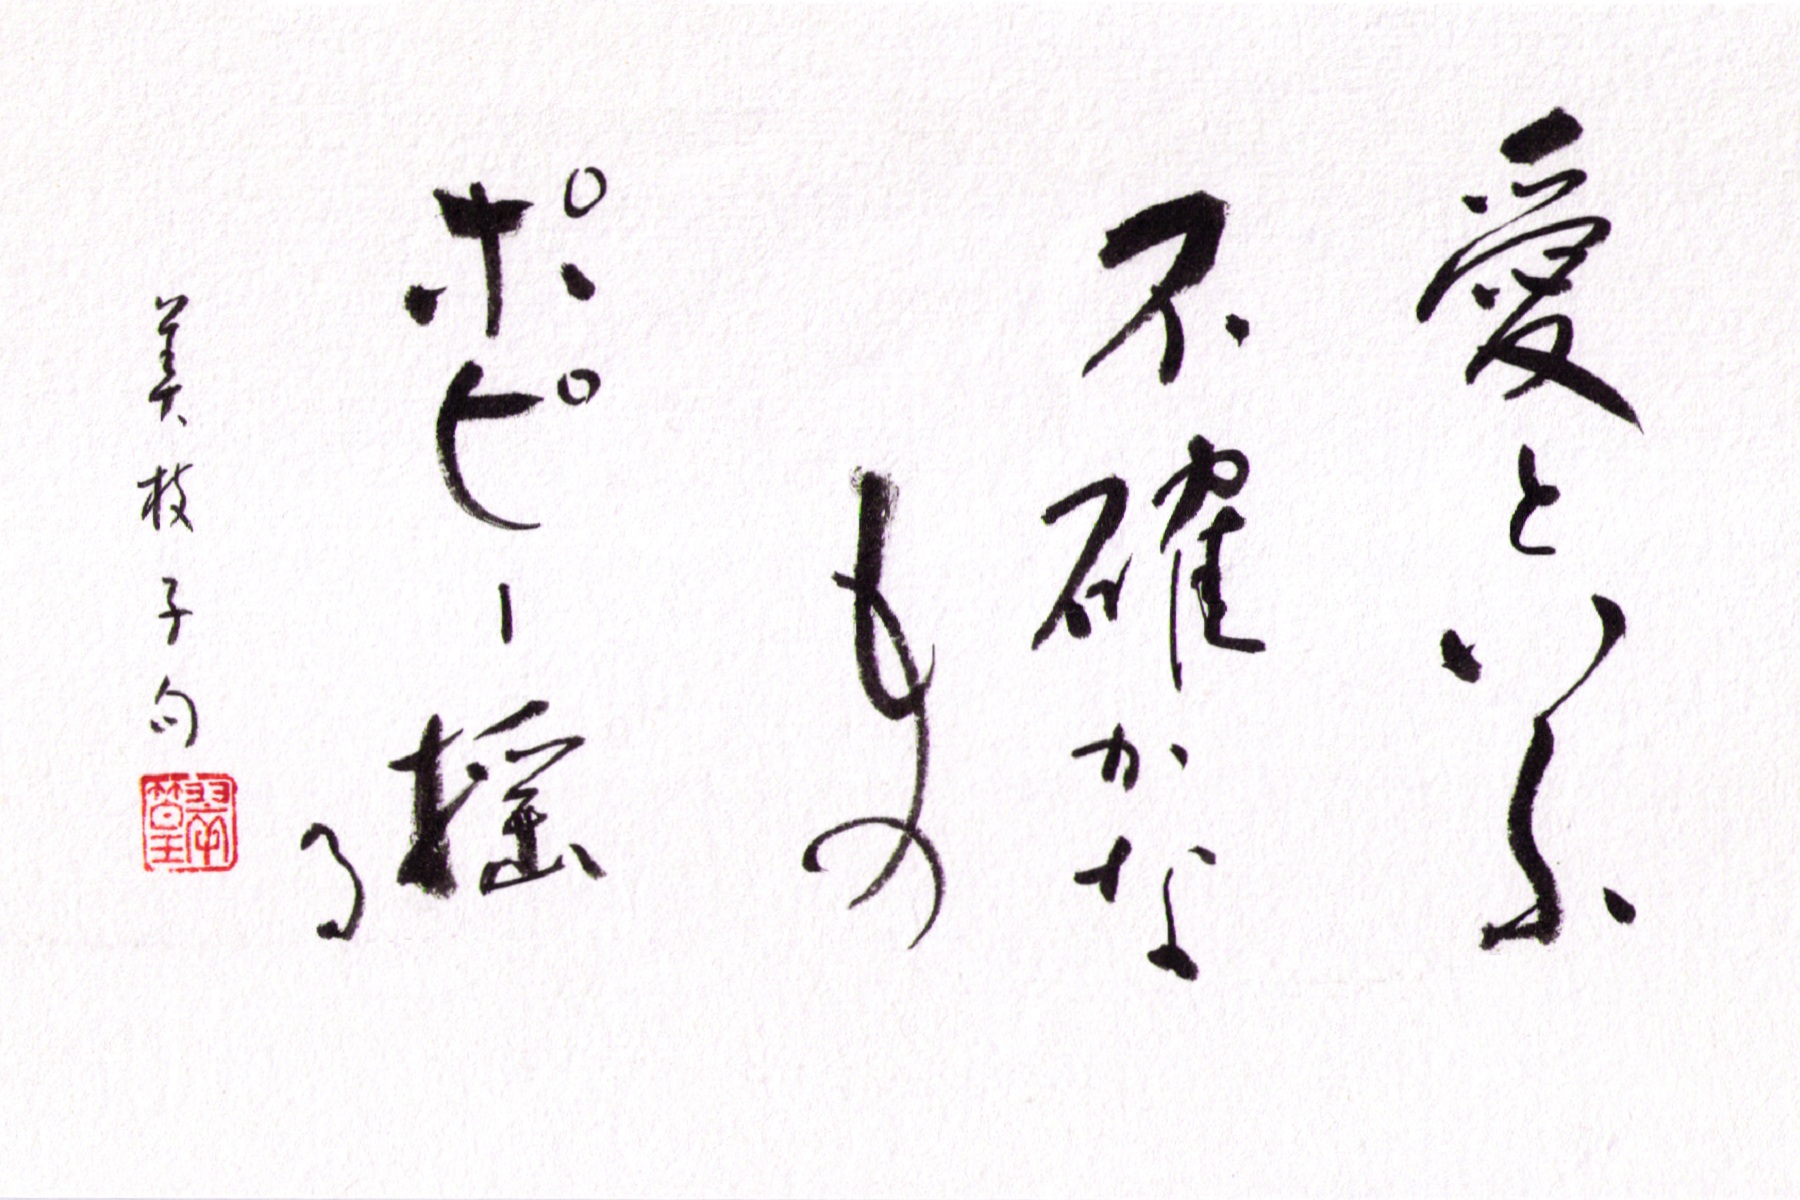 愛といふ
不確かな
もの
ポピー揺
る
美枝子句